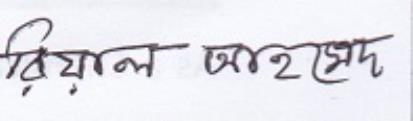 রিয়াল আহমেদ